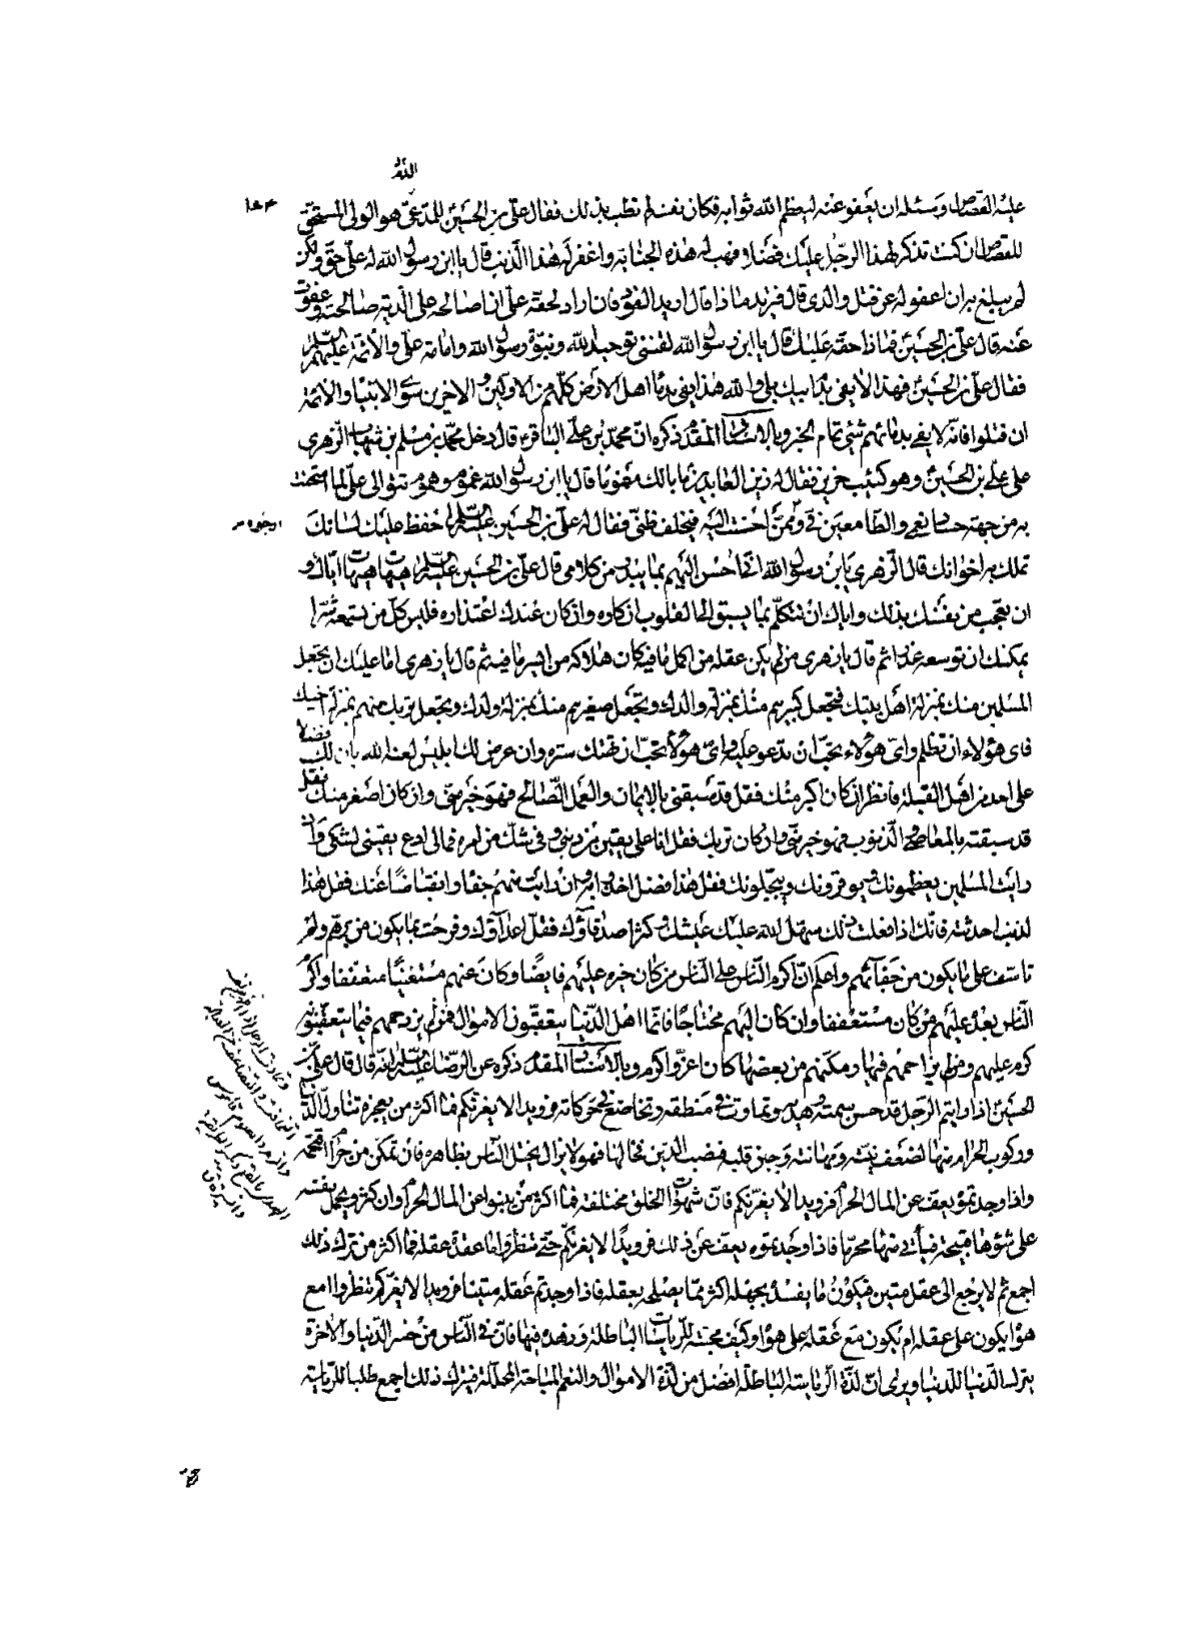 الله
عليه القصاص وسئله ان يعفو عنه ليعظم الله ثوابه فكان نفسه لم تطب بذلك فقال علي بن الحسين للمدعي هو الولي المستحق
للقصاص ان كنت تذكر لهذا الرجل عليك فضلا فهب له هذه الجناية واغفر له هذا الذنب قال يا ابن رسول الله له علي حق ولكن
لم يبلغ به ان اعفو له عن قتل والدي قال فتريد ماذا قال اريد القود فان اراد لحقه علي ان اصالحه على الدية صالحته وعفوت
عنه قال علي بن الحسين فماذا حقه عليك قال يا ابن رسول الله لقنني توحيد الله ونبوة رسول الله وامامة علي والائمة عليهم السلام
فقال علي بن الحسين فهذا لا يفي بدم ابيك بلى والله هذا يفي بدماء اهل الارض كلهم من الاولين والاخرين سوى الانبياء والائمة
ان قتلوا فانه لا يفي بدمائهم شئ تمام الخبر وبالاسناد المقدم ذكره ان محمد بن علي الباقر ع قال دخل محمد بن مسلم بن شهاب الزهري
على علي بن الحسين وهو كئيب حزين فقال له زين العابدين ما بالك مغموما قال يا ابن رسول الله غموم وهموم تتوالى علي لما امتحنت
به من جهة حساد نعمي والطامعين في وممن احسنت اليه فيخلف ظني فقال له علي بن الحسين عليه السلام احفظ عليك لسانك
تملك به اخوانك قال الزهري يا ابن رسول الله اني احسن اليهم بما يبدر من كلامي قال علي بن الحسين عليه السلام هيهات هيهات اياك و
ان تعجب من نفسك بذلك واياك ان تتكلم بما يسبق الى القلوب انكاره وان كان عندك اعتذاره فليس كل من تسمعه شرا
يمكنك ان توسعه عذرا ثم قال يا زهري من لم يكن عقله من اكمل ما فيه كان هلاكه من ايسر ما فيه ثم قال يا زهري اما عليك ان تجعل
المسلمين منك بمنزلة اهل بيتك فتجعل كبيرهم منك بمنزلة والدك وتجعل صغيرهم منك بمنزلة ولدك وتجعل تربك منهم بمنزلة اخيك
فاي هؤلاء ان تظلم واي هؤلاء تحب ان تدعو عليه واي هؤلاء تحب ان تهتك ستره وان عرض لك ابليس لعنه الله بان لك فضلا
على احد من اهل القبلة فانظر ان كان اكبر منك فقل قد سبقني بالايمان والعمل الصالح فهو خير مني وان كان اصغر منك فقل
قد سبقته بالمعاصي والذنوب فهو خير مني وان كان تربك فقل انا على يقين من ذنبي وفي شك من امره فمالي ادع يقيني لشكي وان
رايت المسلمين يعظمونك ويوقرونك ويبجلونك فقل هذا فضل اخذوا به وان رايت منهم جفاء وانقباضا عنك فقل هذا
لذنب احدثته فانك اذا فعلت ذلك سهل الله عليك عيشك وكثر اصدقاؤك وقل اعداؤك وفرحت بما يكون من برهم ولم
تاسف على ما يكون من جفائهم واعلم ان اكرم الناس على الناس من كان خيره عليهم فايضا وكان عنهم مستغنيا متعففا واكرم
الناس بعده عليهم من كان مستعففا وان كان اليهم محتاجا فانما اهل الدنيا يتعقبون الاموال فمن لم يزدحمهم فيما يتعقبونه
كرم عليهم ومن لم يزاحمهم فيها ومكنهم من بعضها كان اعز واكرم وبالاسناد المقدم ذكره عن الرضا عليه السلام انه قال قال علي بن
الحسين اذا رايتم الرجل قد حسن سمته وهديه وتماوت في منطقه وتخاضع في حركاته فرويدا لا يغرنكم فما اكثر من يعجزه تناول الدنيا
وركوب الحرام منها لضعف نيته ومهانته وجبن قلبه فنصب الدين فخا لها فهو لا يزال يختل الناس بظاهره فان تمكن من حرام اقتحمه
واذا وجدتموه يعف عن المال الحرام فرويدا لا يغرنكم فان شهوات الخلق مختلفة فما اكثر من ينبو عن المال الحرام وان كثر ويحمل نفسه
على شوهاء قبيحة فياتي منها محرما فاذا وجدتموه يعف عن ذلك فرويدا لا يغرنكم حتى تنظروا ما عقدة عقله فما اكثر من ترك ذلك
اجمع ثم لا يرجع الى عقل متين فيكون ما يفسد بجهله اكثر مما يصلحه بعقله فاذا وجدتم عقله متينا فرويدا لا يغركم تنظروا امع
هواه يكون على عقله ام يكون مع عقله على هواه وكيف محبته للرياسات الباطلة وزهده فيها فان في الناس من خسر الدنيا والاخرة
يترك الدنيا للدنيا ويرى ان لذة الرياسة الباطلة افضل من لذة الاموال والنعم المباحة المحللة فيترك ذلك اجمع طلبا للرياسة